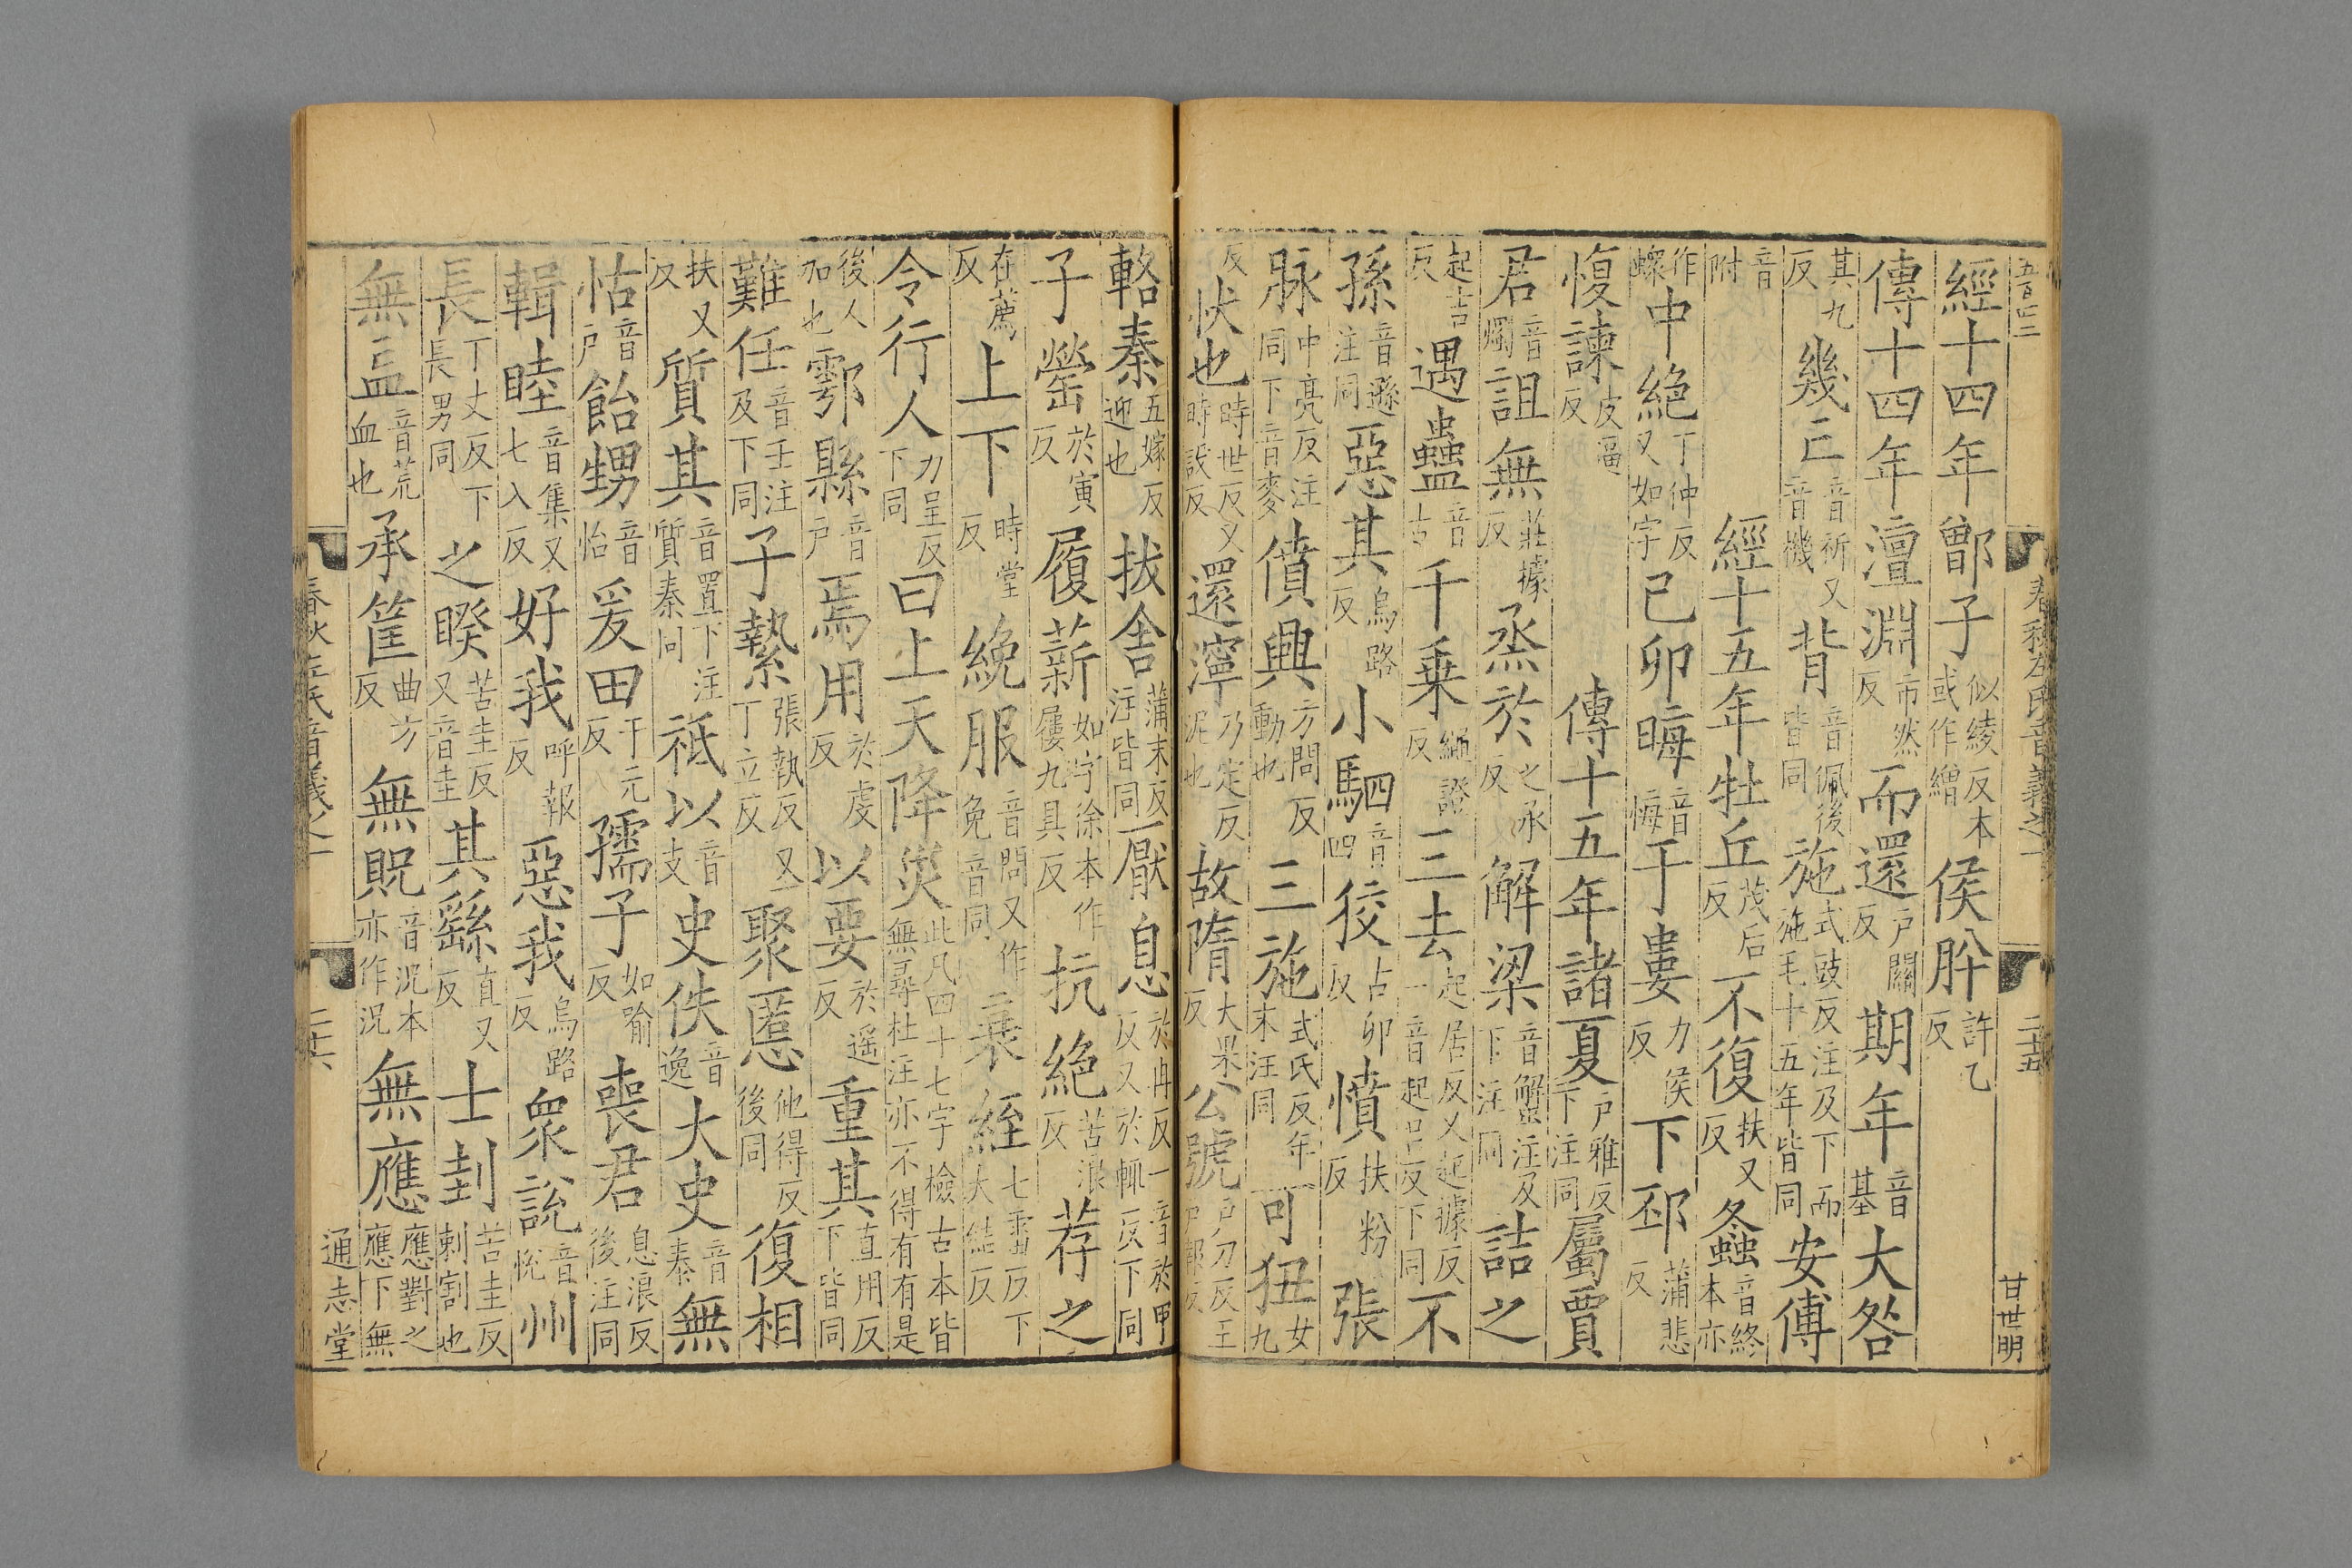 春秋左氏音義之一 二十五 甘世明
經十四年鄫子似綾反本或作繒侯肸許乙反
傳十四年澶淵市然反而還戶關反期年音基大咎
其九反幾亡音祈又音機背音佩後皆同施式豉反注及下而施毛十五年皆同安傅
音附 經十五年牡丘茂后反不復扶又反螽音終本亦
作𧑄中絶丁仲反又如字己卯晦音悔于婁力侯反下邳蒲悲反
愎諫皮逼反 傳十五年諸夏戶雅反下注同屬賈
君音燭詛無莊據反烝於之承反解梁音蟹注及下注同詰之
起吉反遇蠱音古千乗繩證反三去起居反又起據反一音起呂反下同不
孫音遜注同惡其烏路反小駟音四狡古卯反憤扶粉反張
脉中亮反注同下音麥僨興方問反動也三施式氏反年末注同可狃女九
反忕也時世反又時設反還濘乃定反泥也故隋大果反公號戶刀反王戶報反
輅秦五嫁反迎也拔舍蒲末反注皆同厭息於冉反又於輒反一音於甲反下同
子罃於寅反履薪如字徐本作屨九具反抗絶苦浪反荐之
在薦反上下時堂反絻服音問又作免音同衰絰七雷反下大結反
令行人力呈反下同曰上天降災此凡四十七字檢古本皆無尋杜注亦不得有有是
後人加也鄠縣音戶焉用於虔反以要於遥反重其直用反下皆同
難任音壬注及下同子縶張執反又丁立反聚慝他得反後同復相
扶又反質其音置下注質秦同祗以音支史佚音逸大史音泰無
怙音戶飴甥音怡爰田于元反孺子如喻反喪君息浪反後注同
輯睦音集又七入反好我呼報反惡我烏路反衆說音悅州
長丁丈反下長男同之睽苦圭反又音圭其繇直又反士刲苦圭反刺割也
無衁音荒血也承筐曲方反無貺音況本亦作況無應應對之應下無
春秋左氏音義之一 二十六 通志堂